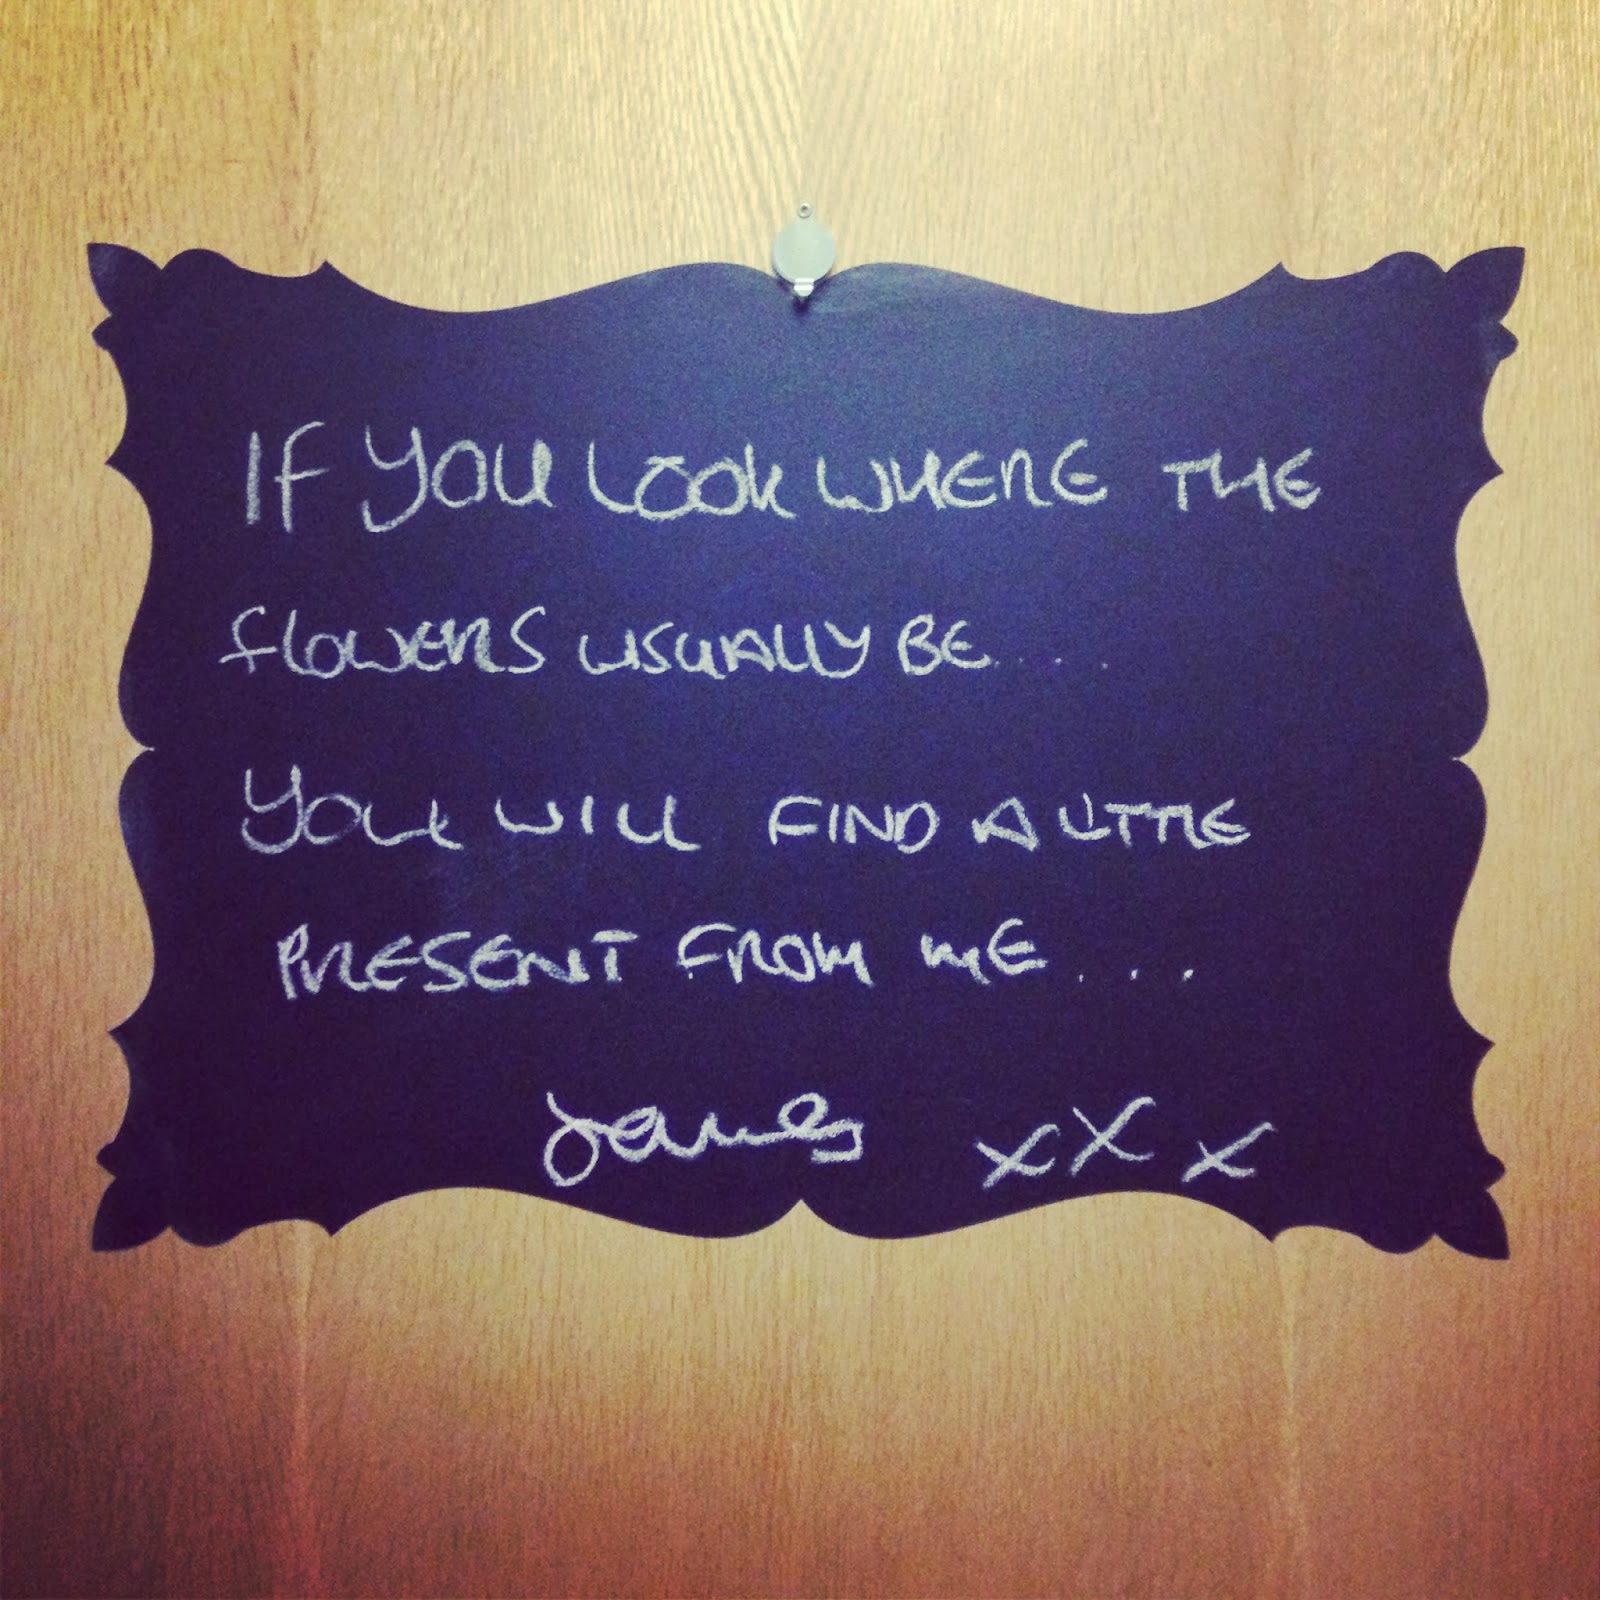 IF YOU LOOK WHERE THE
FLOWERS USUALLY BE....
YOU WILL FIND A LITTLE
PRESENT FROM ME....
James xXx